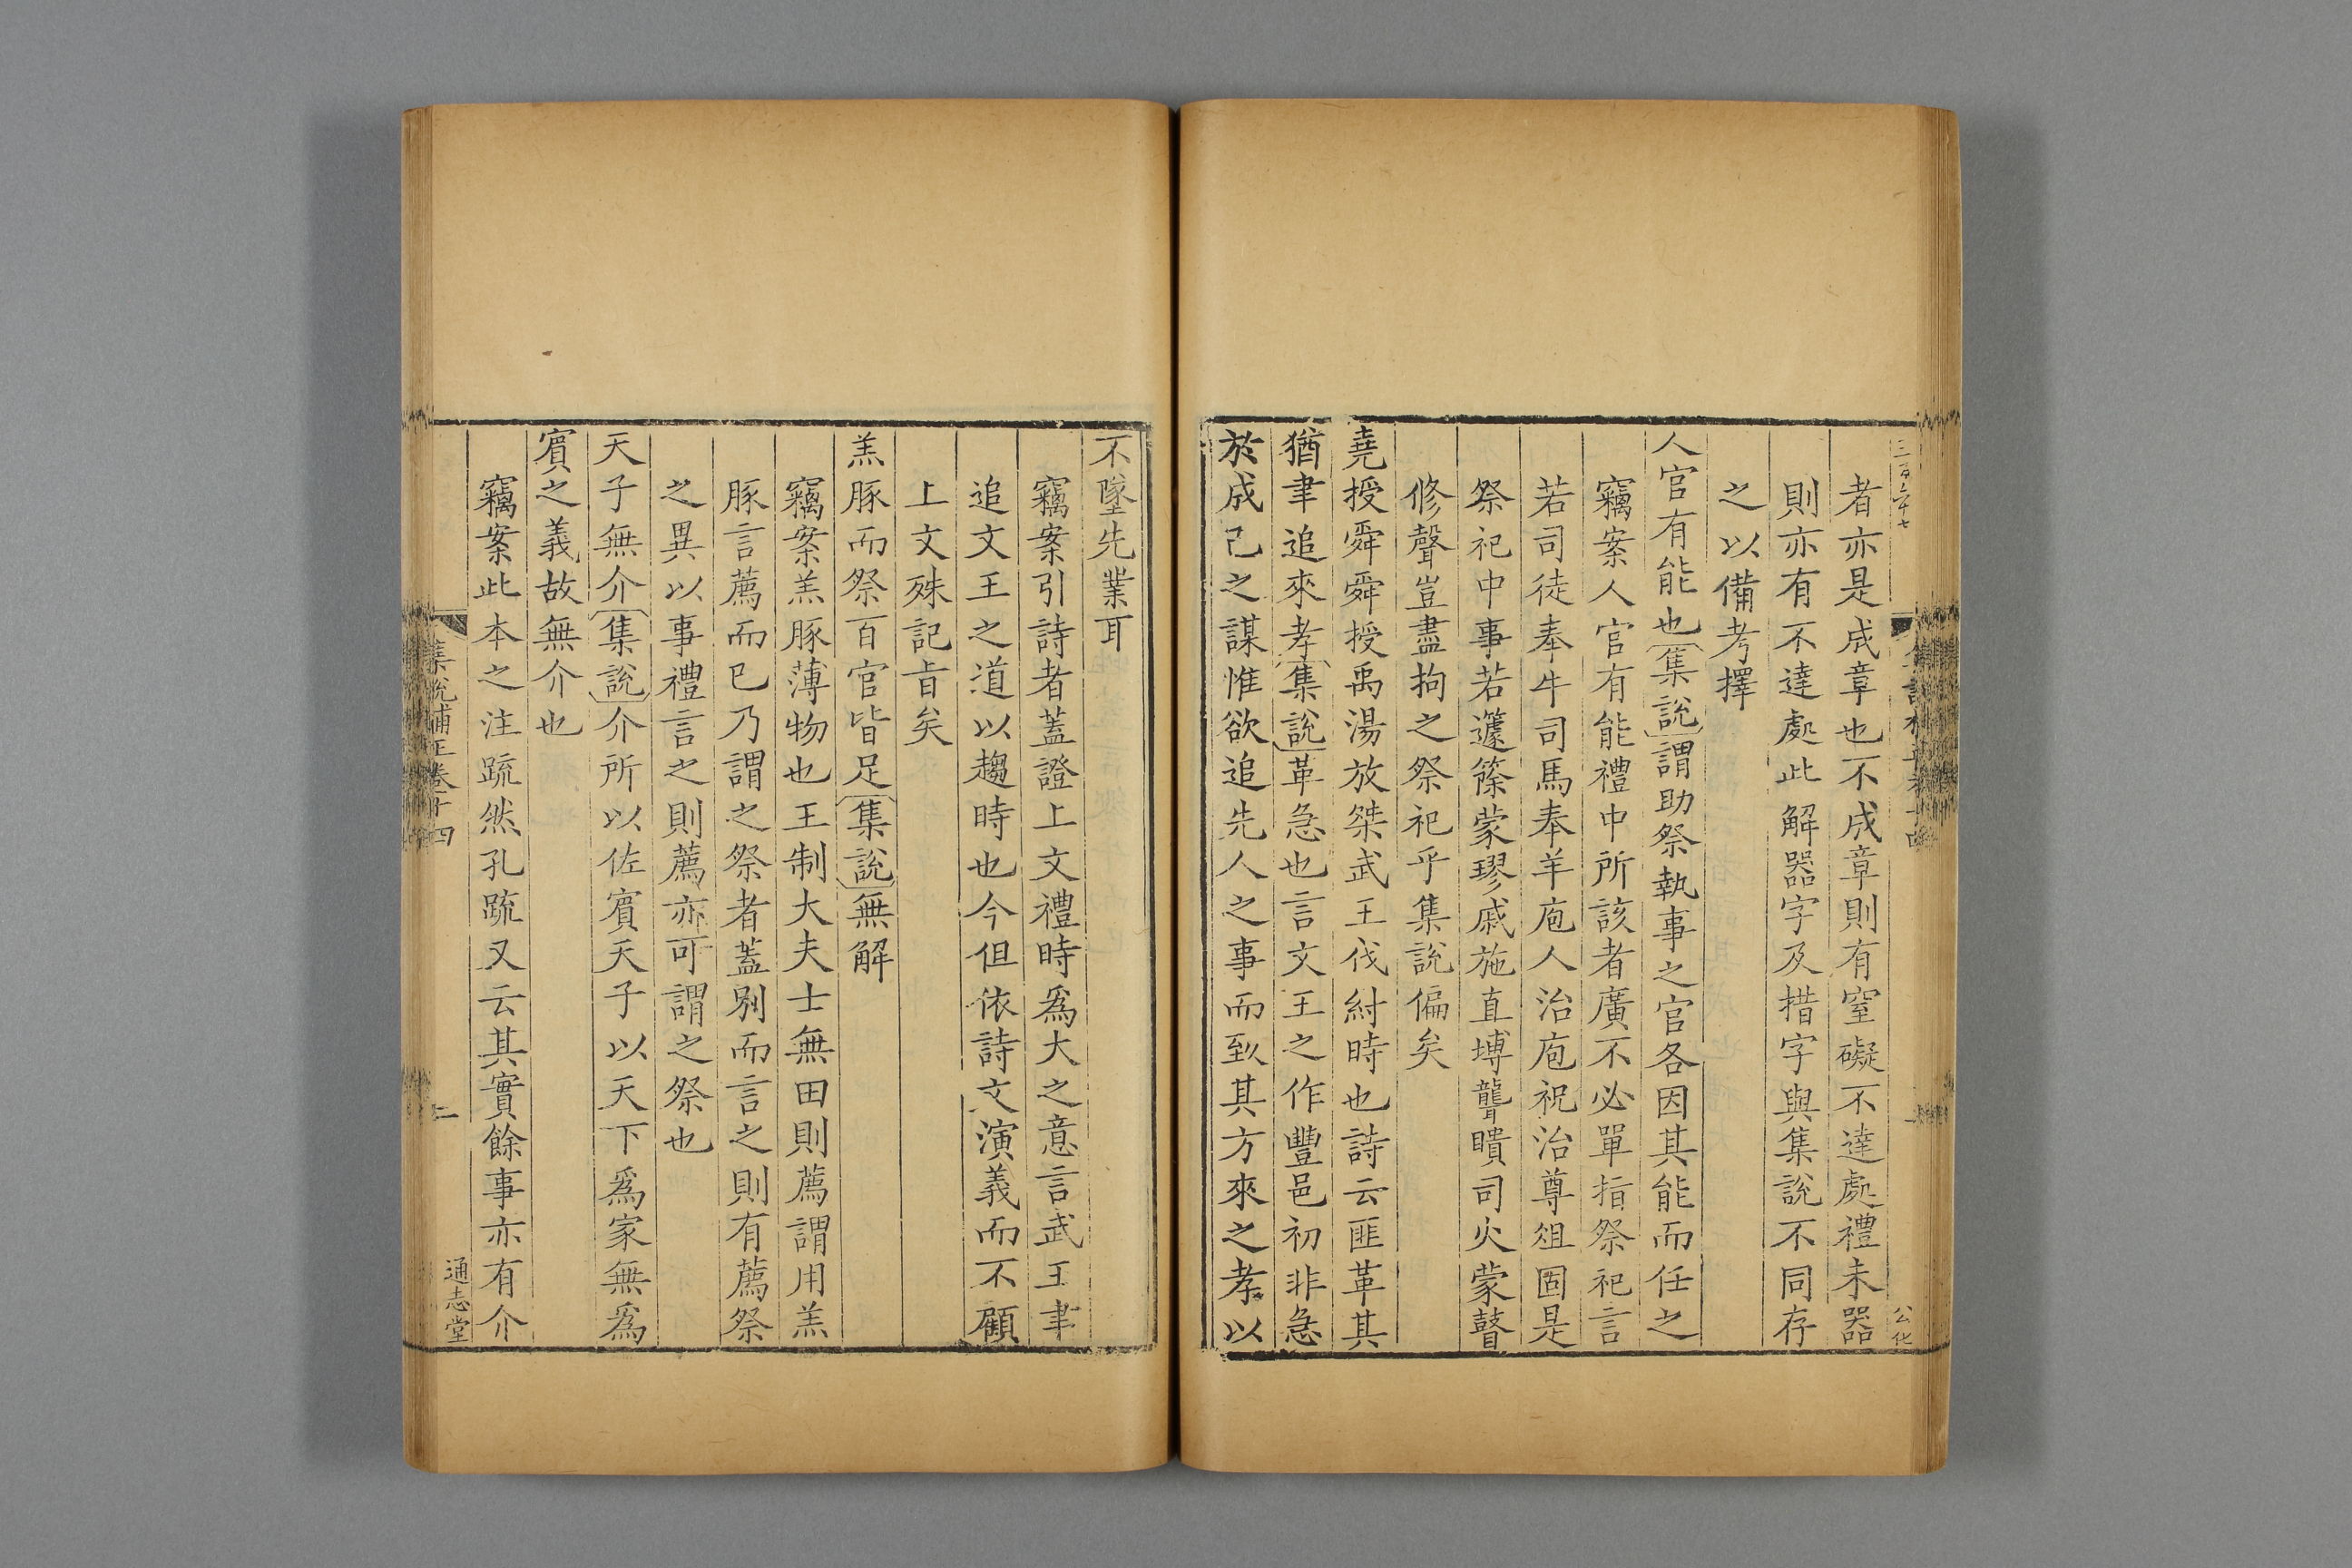 者亦是成章也不成章則有窒礙不達處禮未器
則亦有不達處此解器字及措字與集說不同存
之以備考擇
人官有能也集說謂助祭執事之官各因其能而任之
竊案人官有能禮中所該者廣不必單指祭祀言
若司徒奉牛司馬奉羊庖人治庖祝治尊俎固是
祭祀中事若籧篨蒙璆戚施直塼聾聵司火蒙瞽
修聲豈盡拘之祭祀乎集說偏矣
堯授舜舜授禹湯放桀武王伐紂時也詩云匪革其
猶聿追來孝集說革急也言文王之作豐邑初非急
於成己之謀惟欲追先人之事而致其方來之孝以
不墜先業耳
竊案引詩者蓋證上文禮時爲大之意言武王聿
追文王之道以趨時也今但依詩文演義而不顧
上文殊記旨矣
羔豚而祭百官皆足集說無解
竊案羔豚薄物也王制大夫士無田則薦謂用羔
豚言薦而已乃謂之祭者蓋別而言之則有薦祭
之異以事禮言之則薦亦可謂之祭也
天子無介集說介所以佐賓天子以天下爲家無爲
賓之義故無介也
竊案此本之注疏然孔疏又云其實餘事亦有介
集說補正卷十四
二
通志堂